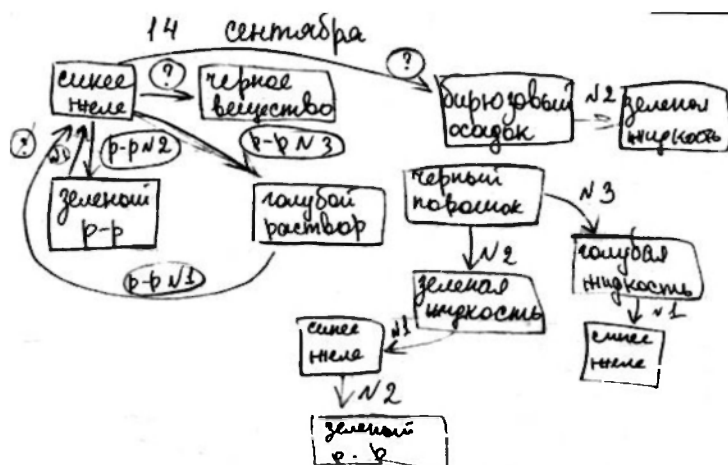 14 сентября
синее
желе
?
черное
вещество
?
бирюзовый
осадок
№2
зеленая
жидкость
?
№1
р-р №2
р-р №3
зеленый
р-р
голубой
раствор
р-р №1
черный
порошок
№3
№2
голубая
жидкость
зеленая
жидкость
№1
№1
синее
желе
синее
желе
№2
зеленый
р-р